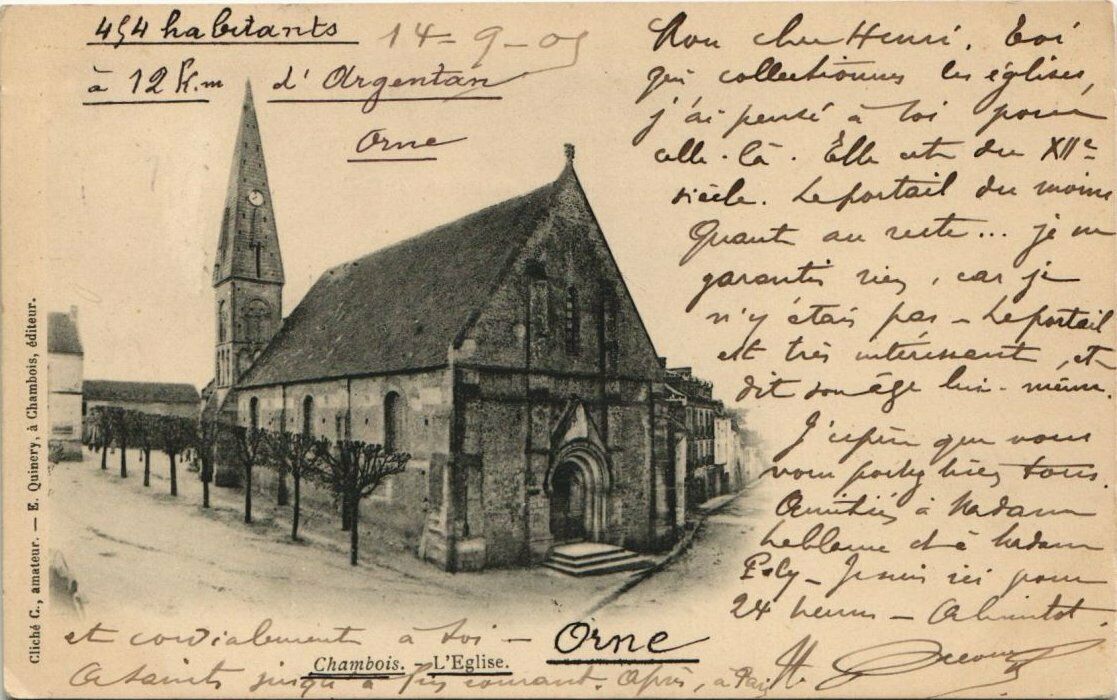 454 habitants
14-9-05
à 12 K.m d'Argentan
Orne
Mon cher Henri. Toi
qui collectionnes les églises,
j'ai pensé à toi pour
celle-là. Elle est du XIIe
siècle. Le portail du moins
Quant au reste... je ne
garantis rien, car je
n'y étais pas - Le portail
est très intéressant, et
dit son âge lui-même.
J'espère que vous
vous portez bien tous.
Amitiés à Madame
et à Madame
Poly - Je suis ici pour
24 heures - A bientôt.
et cordialement à toi -
Orne
Chambois. - L'Eglise.
jusqu'à fin courant. Après, à
Cliché C., amateur. — E. Quinery, à Chambois, éditeur.